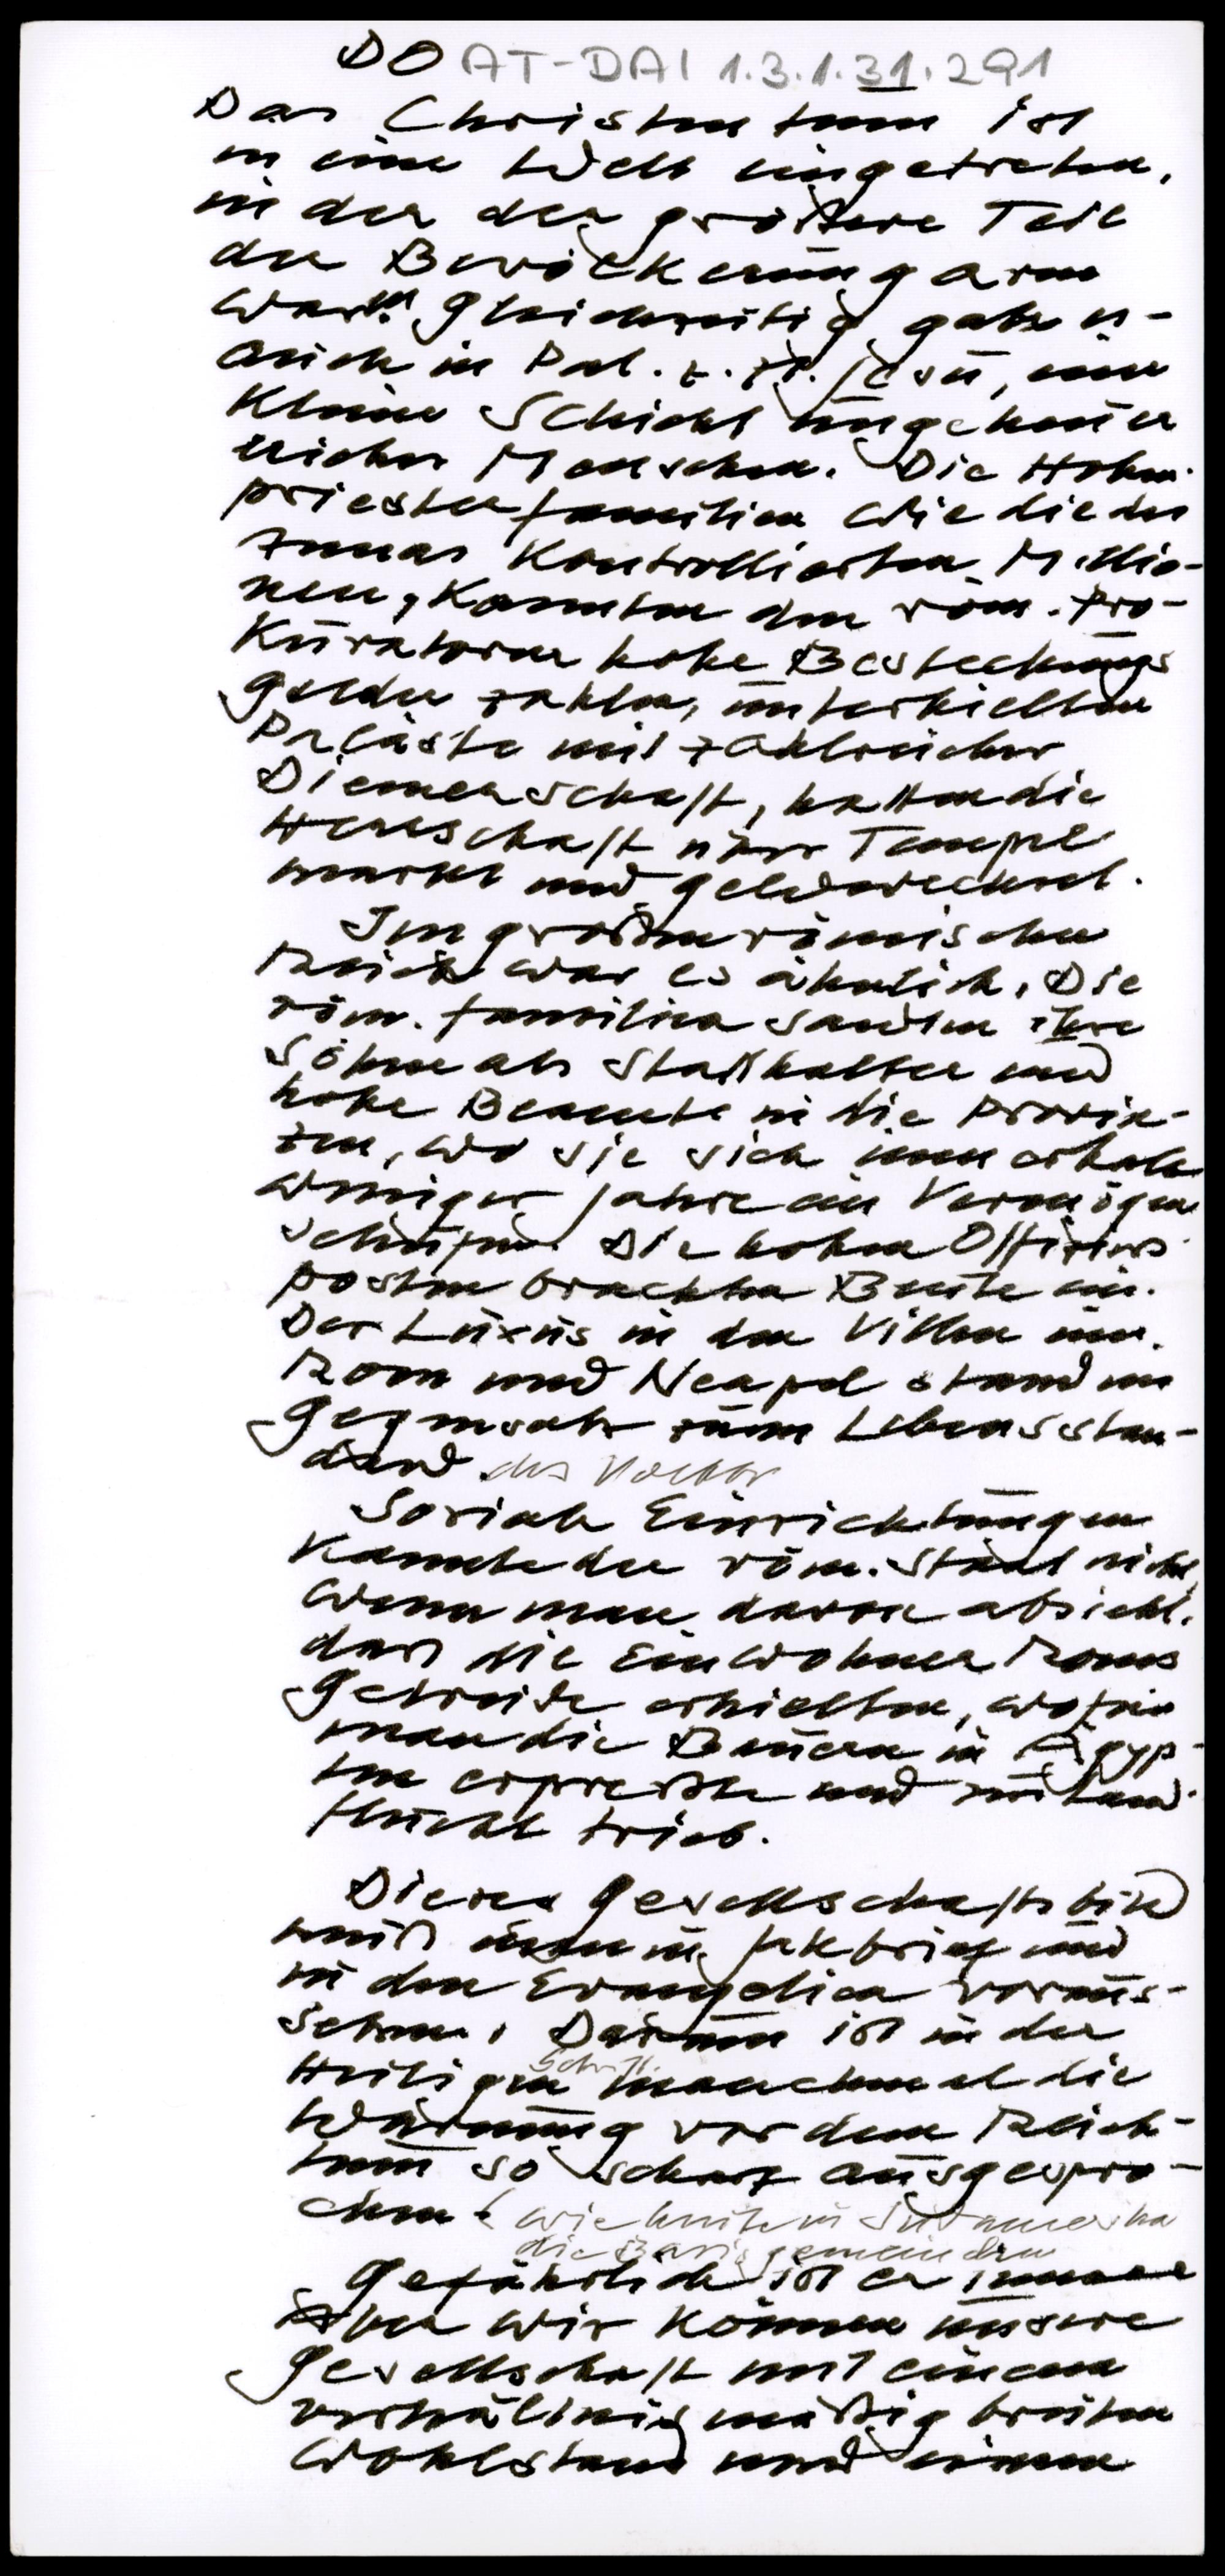 DO AT-DAI 1.3.1.31.291
Das Christentum ist
in eine Welt eingetreten,
in der der größere Teil
der Bevölkerung arm
war!! Gleichzeitig gab es -
auch in Pal. z. Zt. Jesu, eine
kleine Schicht ungeheuer
reicher Menschen. Die Hohen-
priesterfamilien wie die des
Annas kontrollierten Millio-
nen, konnten den röm. Pro-
kuratoren hohe Bestechungs
gelder zahlen, unterhielten
Paläste mit zahlreicher
Dienerschaft, hatten die
Herrschaft über Tempel
markt und Geldwechsel.
Im großen römischen
Reich war es ähnlich. Die
röm. Familien sandten ihre
Söhne als Statthalter und
hohe Beamte in die Provin-
zen, wo sie sich innerhalb
weniger Jahre ein Vermögen
schufen. Die hohen Offiziers
posten brachten Beute ein.
Der Luxus in den Villen um
Rom und Neapel stand im
Gegensatz zum Lebensstan-
dard des Volkes
Soziale Einrichtungen
kannte der röm. Staat nicht,
wenn man davon absieht,
dass die Einwohner Roms
Getreide erhielten, wofür
man die Bauern in Ägyp-
ten erpresste und zur Land-
flucht trieb.
Dieses Gesellschaftsbild
muß man im Jakbrief und
in den Evangelien voraus-
setzen. Darum ist in der
Heiligen Schrift manchmal die
Warnung vor dem Reich-
tum so scharf ausgespro-
chen (wie heute in Südamerika
die Basisgemeinden
Gefährlich ist er immer
Aber wir können unsere
Gesellschaft mit einem
verhältnismäßig breiten
Wohlstand und einem